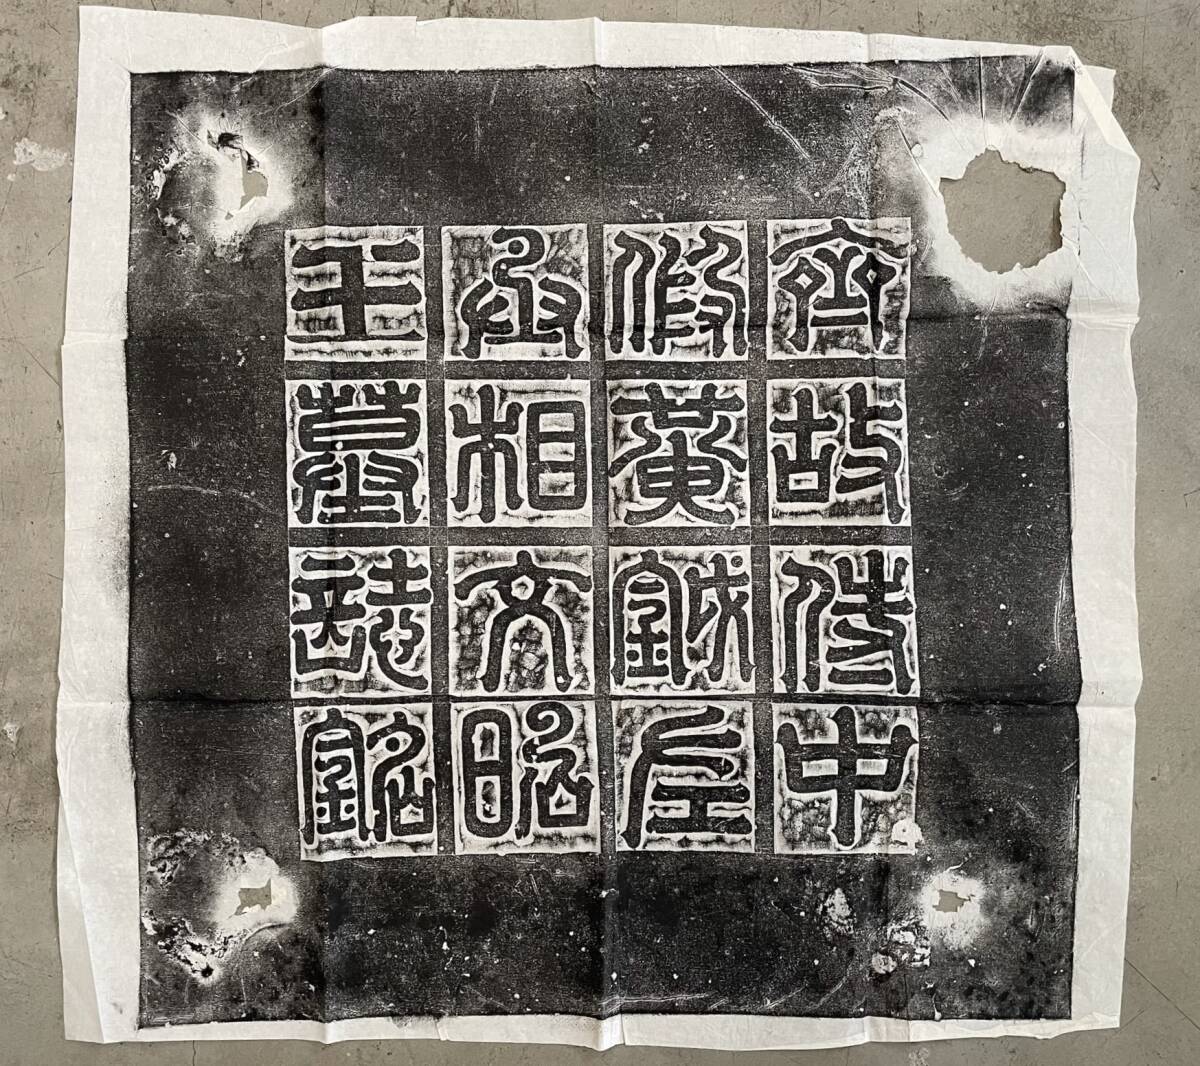 齊故侍中
假黃鉞左
丞相文昭
王墓誌銘